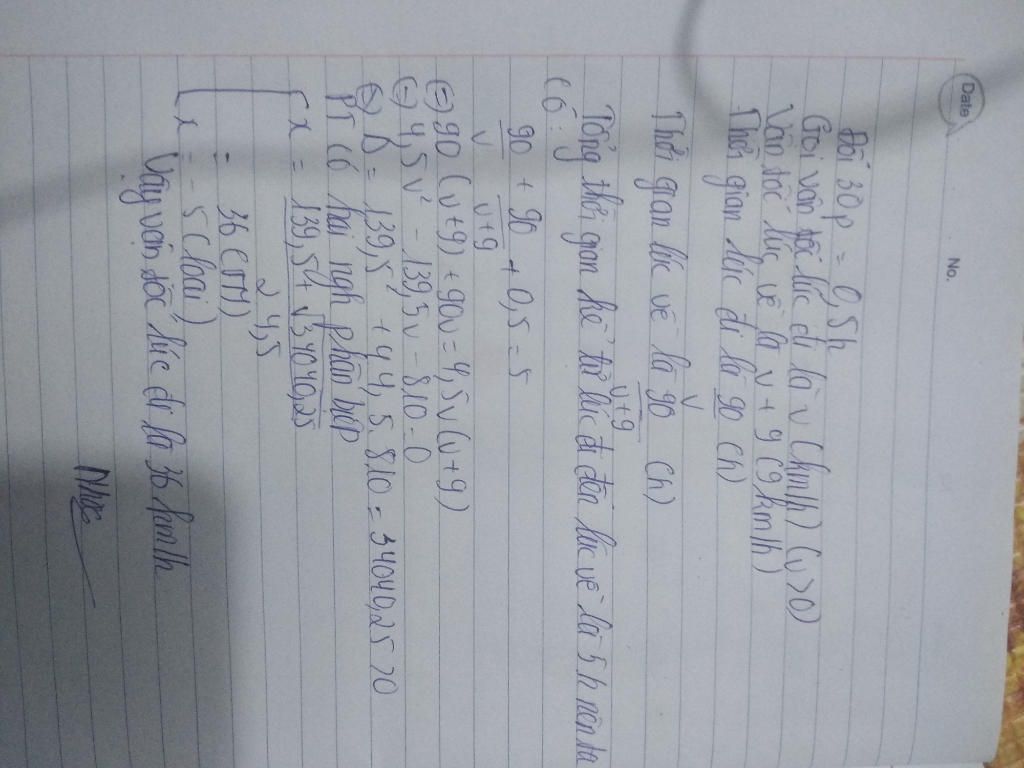 Date
No.
Đổi 30p = 0,5h
Gọi vận tốc lúc đi là v (km/h) (v>0)
Vận tốc lúc về là v + 9 (9km/h)
Thời gian lúc đi là 90/v (h)
Thời gian lúc về là 90/v+9 (h)
Tổng thời gian kể từ lúc đi đến lúc về là 5h nên ta
có:
90/v + 90/v+9 + 0,5 = 5
(=) 90 (v+9) + 90v = 4,5v (v+9)
(=) 4,5v² - 139,5v - 810 = 0
(=) Δ = 139,5² + 4.4,5.810 = 34040,25 > 0
PT có hai ngh phân biệt
x = 139,5 + √34040,25 / 2.4,5
= 36 (TM)
x = -5 (loại)
Vậy vận tốc lúc đi là 36 km/h